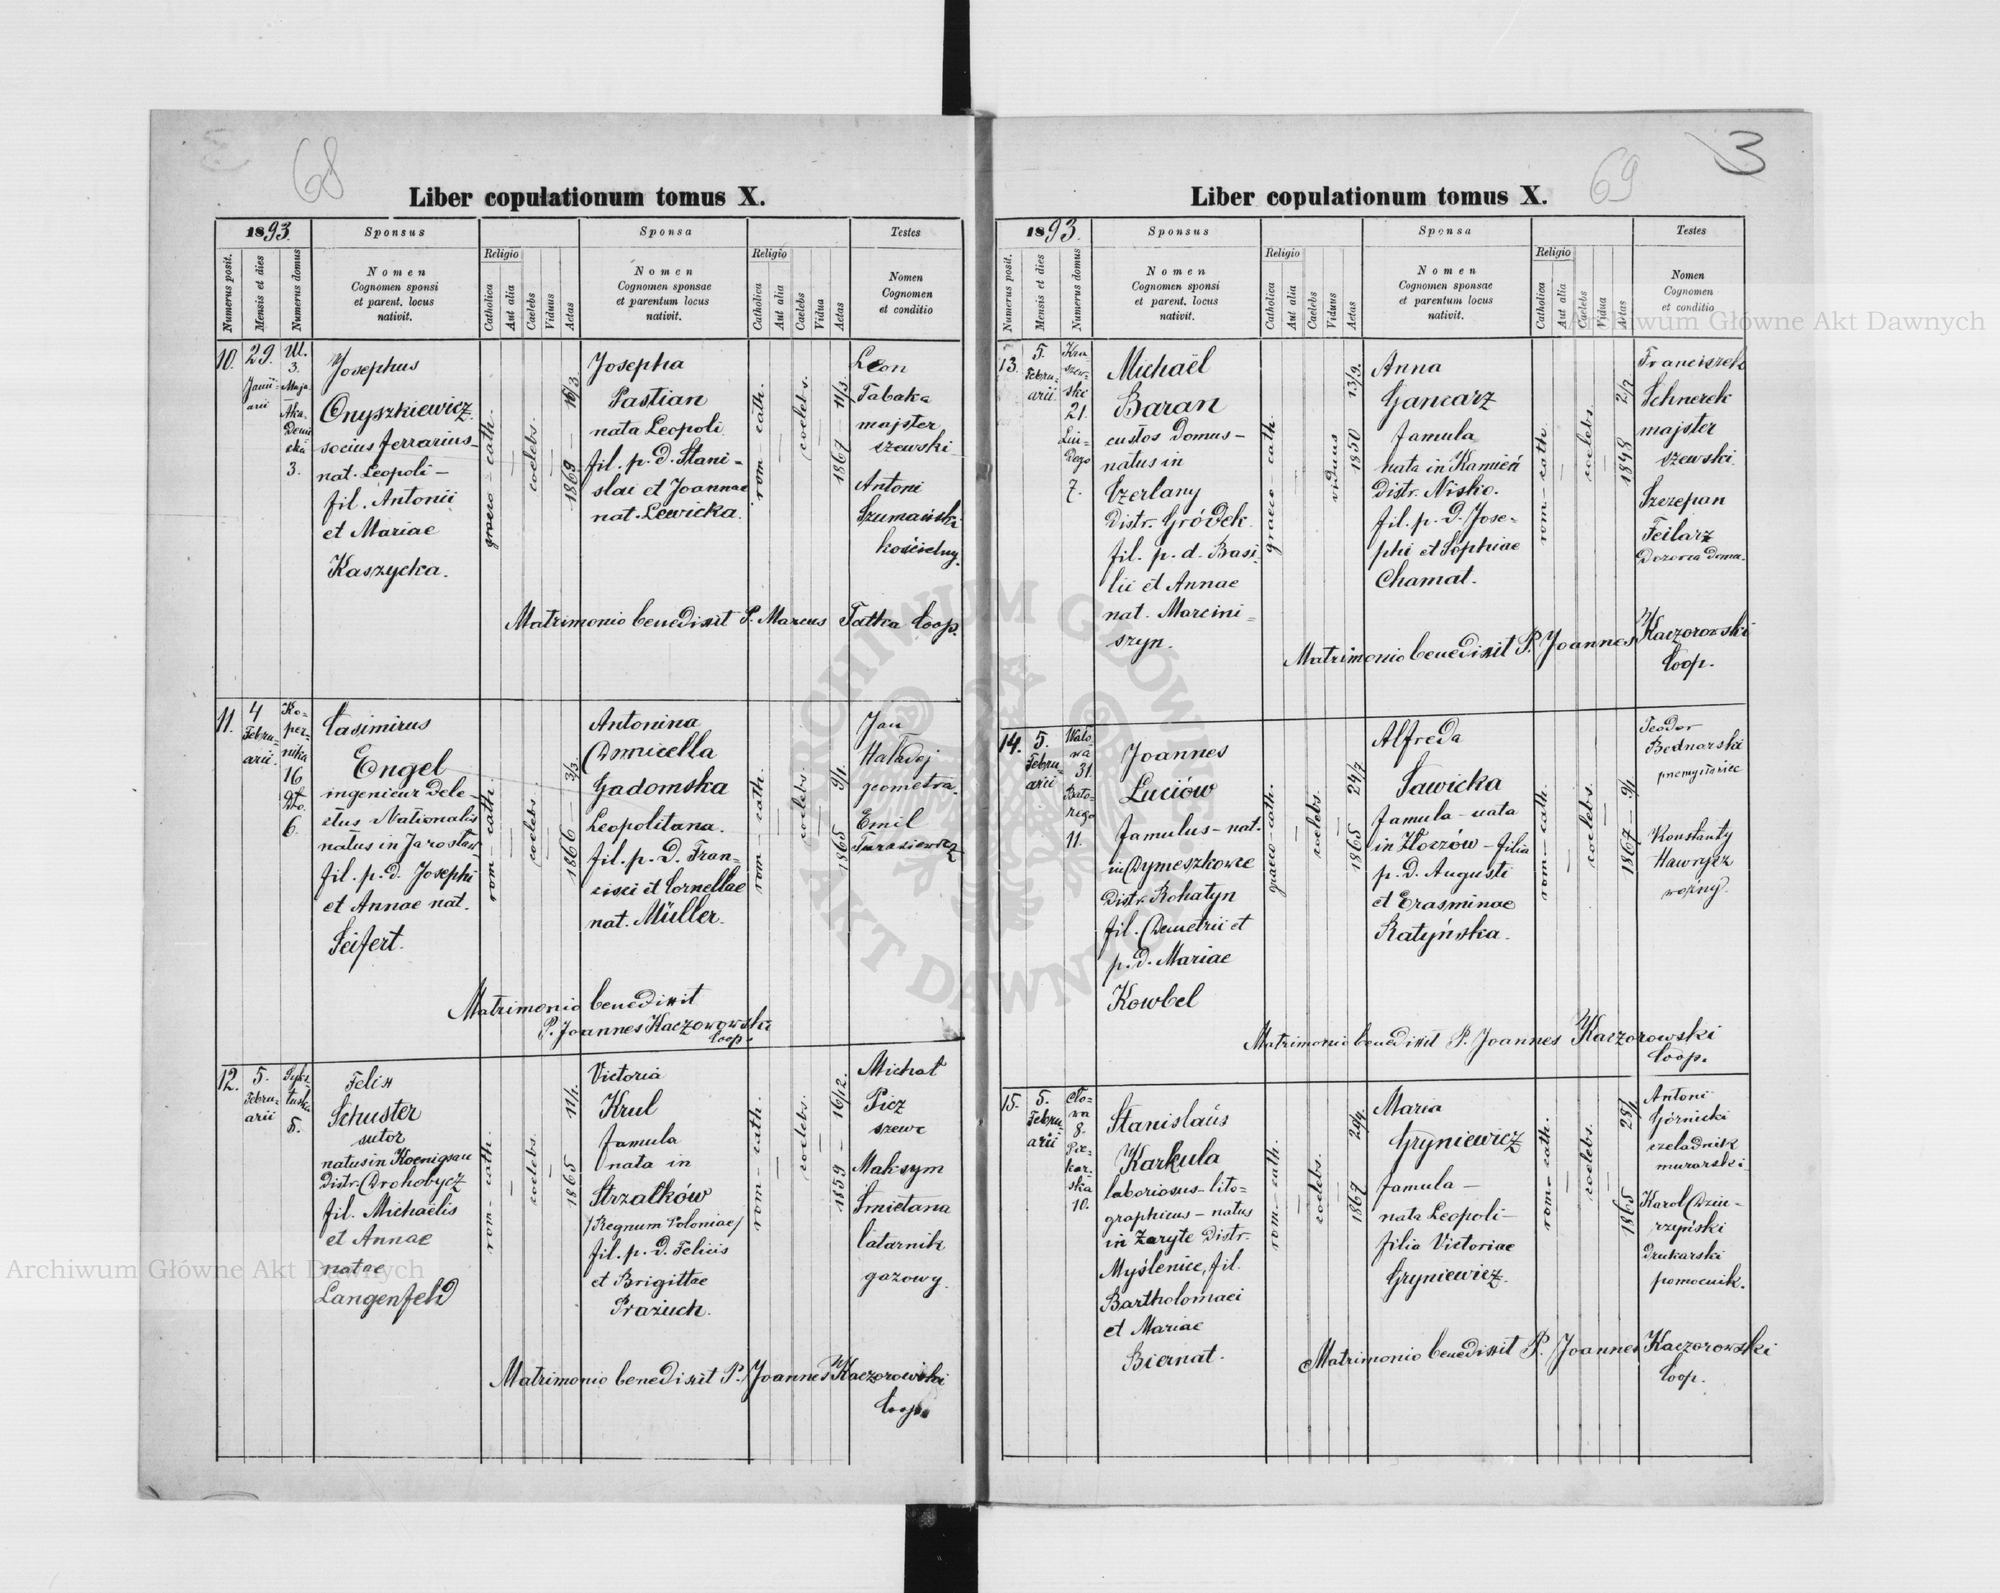 68
Liber copulationum tomus X.
1893.
Sponsus
Sponsa
Testes
Numerus posit.
Mensis et dies
Numerus domus
Nomen
Cognomen sponsi
et parent. locus
nativit.
Religio
Catholica
Aut alia
Caelebs
Viduus
Aetas
Nomen
Cognomen sponsae
et parentum locus
nativit.
Religio
Catholica
Aut alia
Caelebs
Vidua
Aetas
Nomen
Cognomen
et conditio
10.
29.
Janu-
arii
Ul.
3.
Maja
Aka
Demi
cka
3.
Josephus
Onyszkiewicz
socius ferrarius-
nat. Leopoli-
fil. Antonii
et Mariae
Kaszycka.
graeco-cath.
coelebs.
1869
Josepha
Pastian
nata Leopoli
fil. p. d. Stani-
slai et Joannae
nat. Lewicka.
rom-cath.
coelebs.
1867 - 11/3
Leon
Tabaka
majster
szewski
Antoni
Szumański
kościelny.
Matrimonio benedixit P. Marcus Tatka Coop.
11.
4
Febru-
arii.
Ko-
per-
nika
16
6.
Casimirus
Engel
ingenieur dele-
ctus Nationalis
natus in Jarosław
fil. p. d. Josephi
et Annae nat.
Seifert.
rom-cath.
coelebs.
1866 - 3/3
Antonina
Domicella
Gadomska
Leopolitana.
fil. p. d. Fran-
cisci et Cornellae
nat. Müller.
rom-cath.
coelebs.
1865 9/1.
Jan
Hałdej
geometra.
Emil
Tarasiewicz
Matrimonio benedixit
P. Joannes Kaczorowski
Coop.
12.
5.
Febru-
arii
Syks-
tuska
5.
Felix
Schuster
sutor
natus in Koenigsau
distr. Drohobycz
fil. Michaelis
et Annae
natae
Langenfeld
rom-cath.
coelebs.
1865 11/1.
Victoria
Krul
famula
nata in
Strzałków
/Regnum Poloniae/
fil. p. d. Felicis
et Brigittae
Prażuch.
rom-cath.
coelebs.
1859 - 16/12.
Michał
Picz
szewc
Maksym
Śmietana
latarnik
gazowy.
Matrimonio benedixit P. Joannes Kaczorowski
Coop.
69
3
Liber copulationum tomus X.
1893.
Sponsus
Sponsa
Testes
Numerus posit.
Mensis et dies
Numerus domus
Nomen
Cognomen sponsi
et parent. locus
nativit.
Religio
Catholica
Aut alia
Caelebs
Viduus
Aetas
Nomen
Cognomen sponsae
et parentum locus
nativit.
Religio
Catholica
Aut alia
Caelebs
Vidua
Aetas
Nomen
Cognomen
et conditio
13.
5.
Febru-
arii
Kra-
szew-
ski
21.
Lin-
dego
7.
Michaël
Baran
custos domus-
natus in
Czerlany
distr. Gródek
fil. p. d. Basi-
lii et Annae
nat. Marcini-
szyn.
graeco-cath.
viduus
1850 13/9.
Anna
Gancarz
famula
nata in Kamień
distr. Nisko.
fil. p. d. Jose-
phi et Sophiae
Chamat.
rom-cath.
coelebs.
1848 2/7
Franciszek
Schnerch
majster
szewski
Szczepan
Feilarz
Dozorca domu.
Matrimonio benedixit P. Joannes Kaczorowski
Coop.
14.
5.
Febru-
arii
Wało-
wa
31.
Bato-
rego
11.
Joannes
Luciów
famulus-nat.
in Dymeszkowce
distr. Rohatyn
fil. Demetrii et
p. d. Mariae
Kowbel
graeco-cath.
coelebs.
1865 24/7
Alfreda
Sawicka
famula-nata
in Złoczów-filia
p. d. Augusti
et Erasminae
Ratyńska.
rom-cath.
coelebs.
1867 - 9/1
Teodor
Bednarski
przemysłowiec
Konstanty
Hawrysz
woźny.
Matrimonio benedixit P. Joannes Kaczorowski
Coop.
15.
5.
Febru-
arii
Cło-
wa
8.
Pie-
kar-
ska
10.
Stanislaus
Karkula
laboriosus-lito-
graphicus-natus
in Zaryte distr.
Myślenice, fil.
Bartholomaei
et Mariae
Biernat.
rom-cath.
coelebs.
1867 29/4.
Maria
Gryniewicz
famula-
nata Leopoli-
filia Victoriae
Gryniewicz.
rom-cath.
coelebs.
1865
Antoni
Górnicki
czeladnik
murarski
Karol Dziu-
rzyński
Drukarski
pomocnik.
Matrimonio benedixit P. Joannes Kaczorowski
Coop.
Archiwum Główne Akt Dawnych
Archiwum Główne Akt Dawnych
ARCHIWUM GŁÓWNE
AKT DAWNYCH